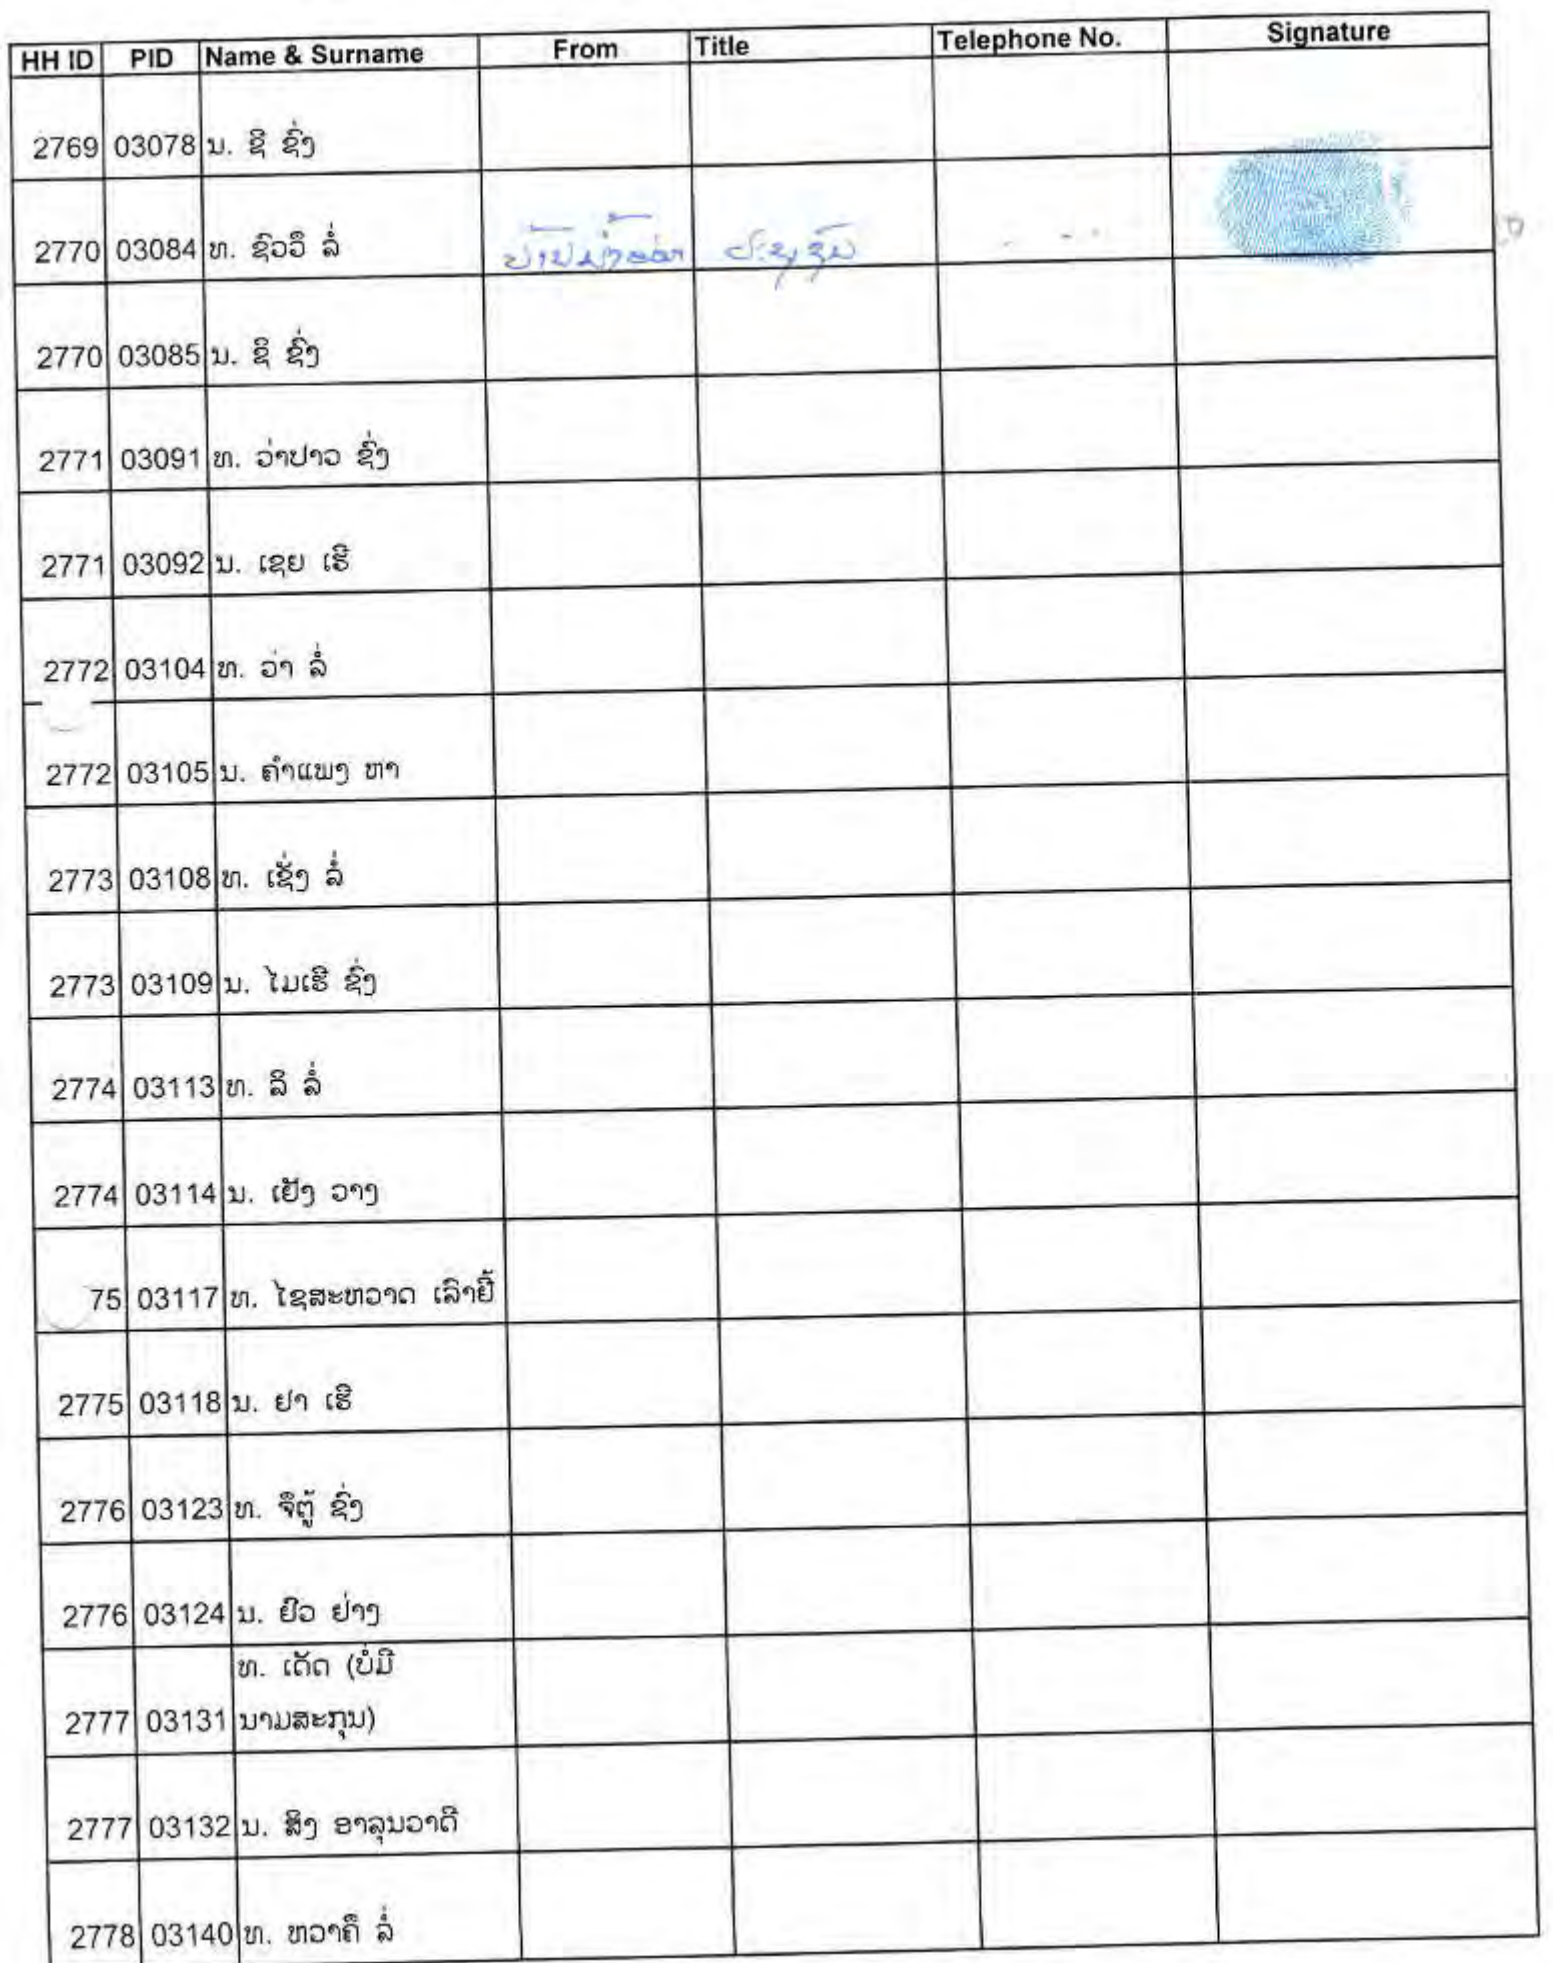 HH ID PID Name & Surname From Title Telephone No. Signature
2769 03078 ນ. ຊິ ຊົ່ງ
2770 03084 ທ. ຊົວວື ລໍ່ ປະຊຸຊົນ
2770 03085 ນ. ຊິ ຊົ່ງ
2771 03091 ທ. ວ່າປາວ ຊົ່ງ
2771 03092 ນ. ເຊຍ ເຮີ
2772 03104 ທ. ວ່າ ລໍ່
2772 03105 ນ. ຄຳແພງ ຫາ
2773 03108 ທ. ເຊັ່ງ ລໍ່
2773 03109 ນ. ໄມເຮີ ຊົ່ງ
2774 03113 ທ. ລິ ລໍ່
2774 03114 ນ. ເຢັງ ວາງ
75 03117 ທ. ໄຊສະຫວາດ ເລົາຢີ້
2775 03118 ນ. ຢາ ເຮີ
2776 03123 ທ. ຈຶຕູ້ ຊົ່ງ
2776 03124 ນ. ຍົວ ຢ່າງ
ທ. ເດັດ (ບໍ່ມີ
2777 03131 ນາມສະກຸນ)
2777 03132 ນ. ສິງ ອາລຸນວາດີ
2778 03140 ທ. ຫວາຄື ລໍ່